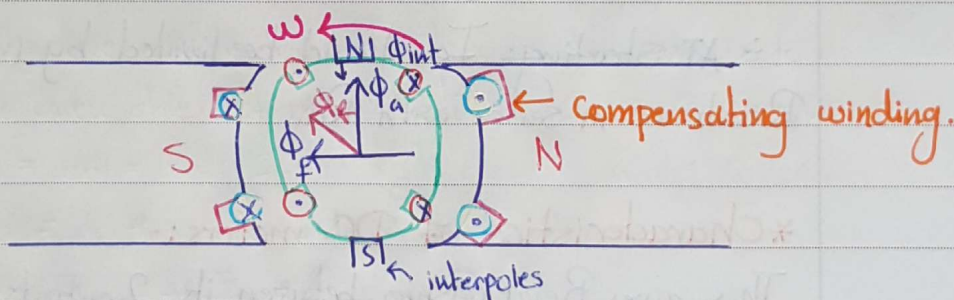 ω
N Φint
Φa
Φf
S
N
← Compensating winding.
S
interpoles